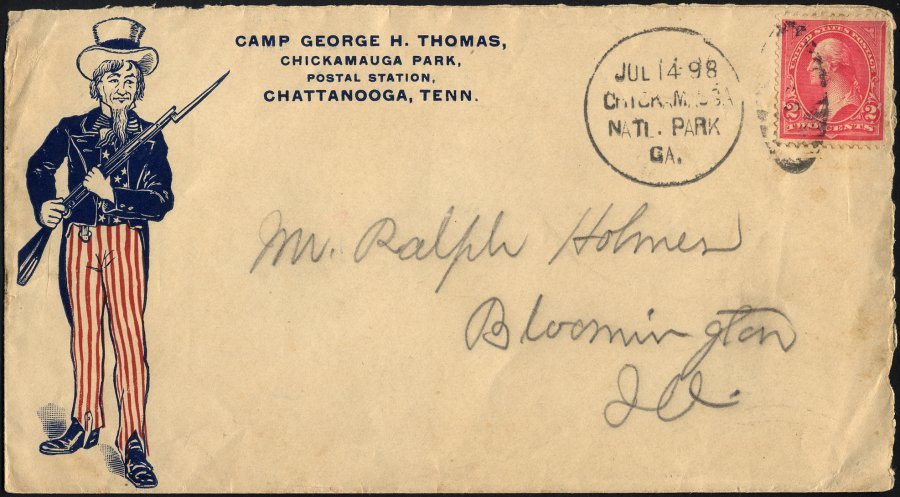 CAMP GEORGE H. THOMAS,
CHICKAMAUGA PARK,
POSTAL STATION,
CHATTANOOGA, TENN.
JUL 14 98
CHICKAMAUGA
NATL. PARK
GA.
UNITED STATES POSTAGE
2 2
TWO CENTS
Mr. Ralph Holmes
Bloomington
Ill.